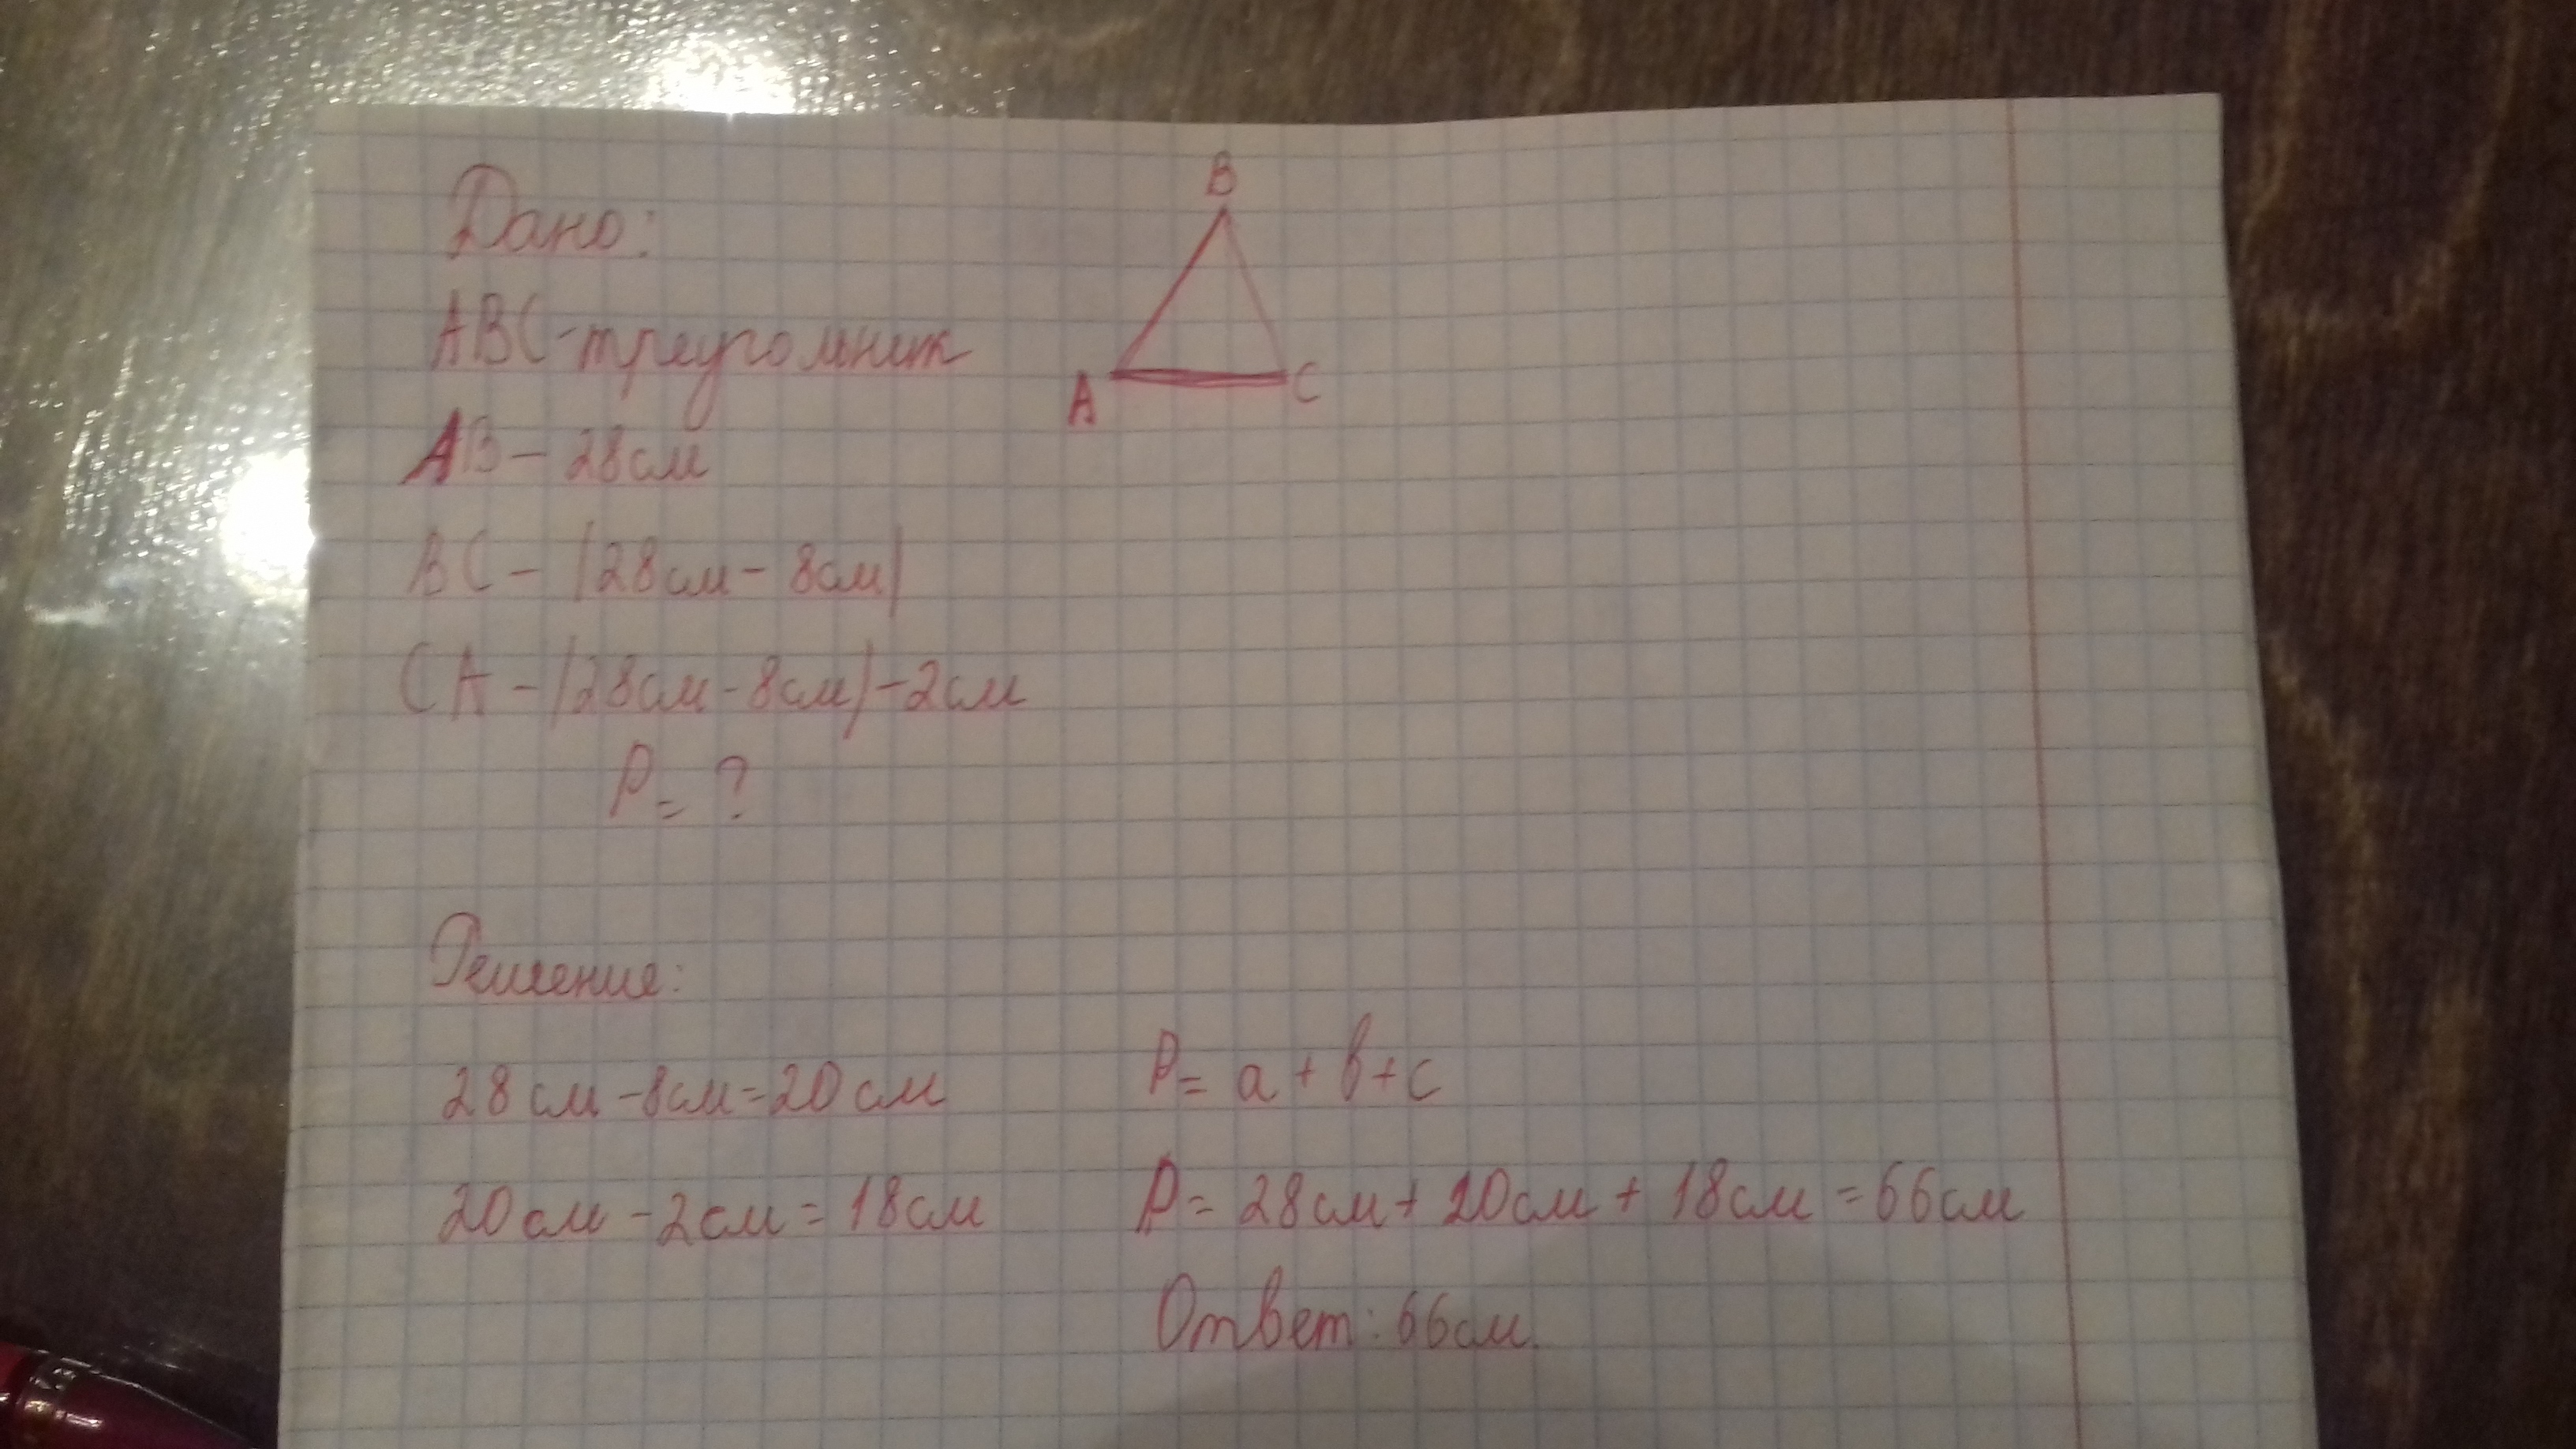 Дано:
ABC-треугольник
AB - 28см
BC - (28см - 8см)
CA - (28см - 8см) - 2см
P = ?
B
A
C
Решение:
28см - 8см = 20см
20см - 2см = 18см
P = a + b + c
P = 28см + 20см + 18см = 66см
Ответ: 66см.